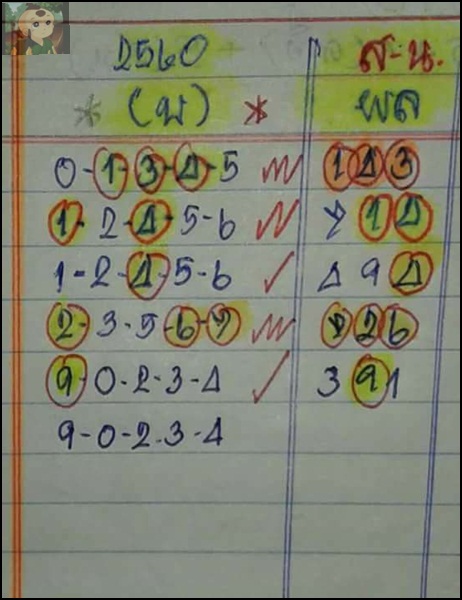 2560 ส-น.
* (พ) * ผล
0-1-3-4-5 143
1-2-4-5-6 714
1-2-4-5-6 ✓ 494
2-3-5-6-7 726
9-0-2-3-4 ✓ 391
9-0-2-3-4